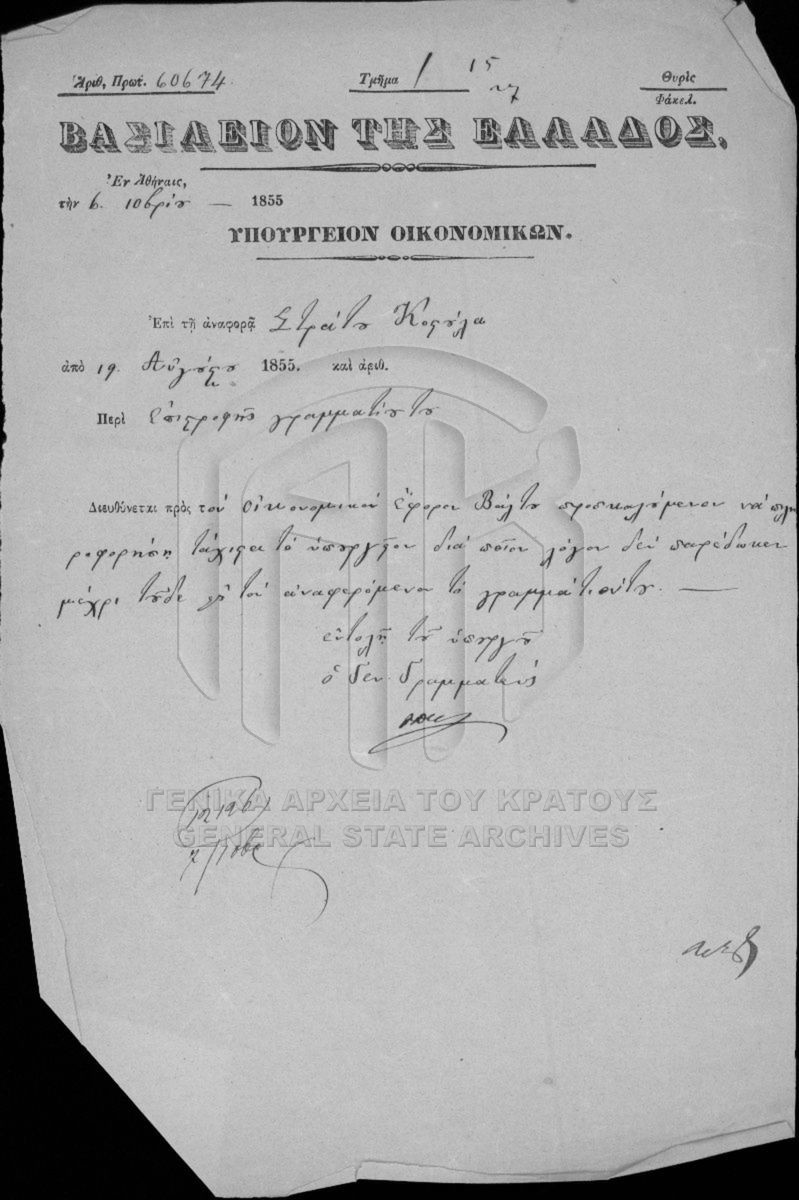 Ἀριθ. Πρωτ. 60674. Τμῆμα 15 Θυρὶς
27 Φάκελ.
ΒΑΣΙΛΕΙΟΝ ΤΗΣ ΕΛΛΑΔΟΣ,
Ἐν Ἀθήναις,
τὴν 6. 10βρίου — 1855
ΥΠΟΥΡΓΕΙΟΝ ΟΙΚΟΝΟΜΙΚΩΝ.
Ἐπὶ τῇ ἀναφορᾷ Στράτου
ἀπὸ 19 Αὐγούστου 1855. καὶ ἀριθ.
Περὶ ἐπιστροφῆς γραμματίου του
Διευθύνεται πρὸς τὸν οἰκονομικὸν ἔφορον Βάλτου προσκαλούμενον νὰ πλη
ροφορήσῃ τάχιστα τὸ ὑπουργεῖον διὰ ποῖον λόγον δὲν παρέδωκεν
μέχρι τοῦδε εἰς τὸν ἀναφερόμενον τὸ γραμμάτιόν του. —
ἐντολῇ τοῦ ὑπουργοῦ
ὁ Γεν. Γραμματεὺς
ΓΕΝΙΚΑ ΑΡΧΕΙΑ ΤΟΥ ΚΡΑΤΟΥΣ
GENERAL STATE ARCHIVES